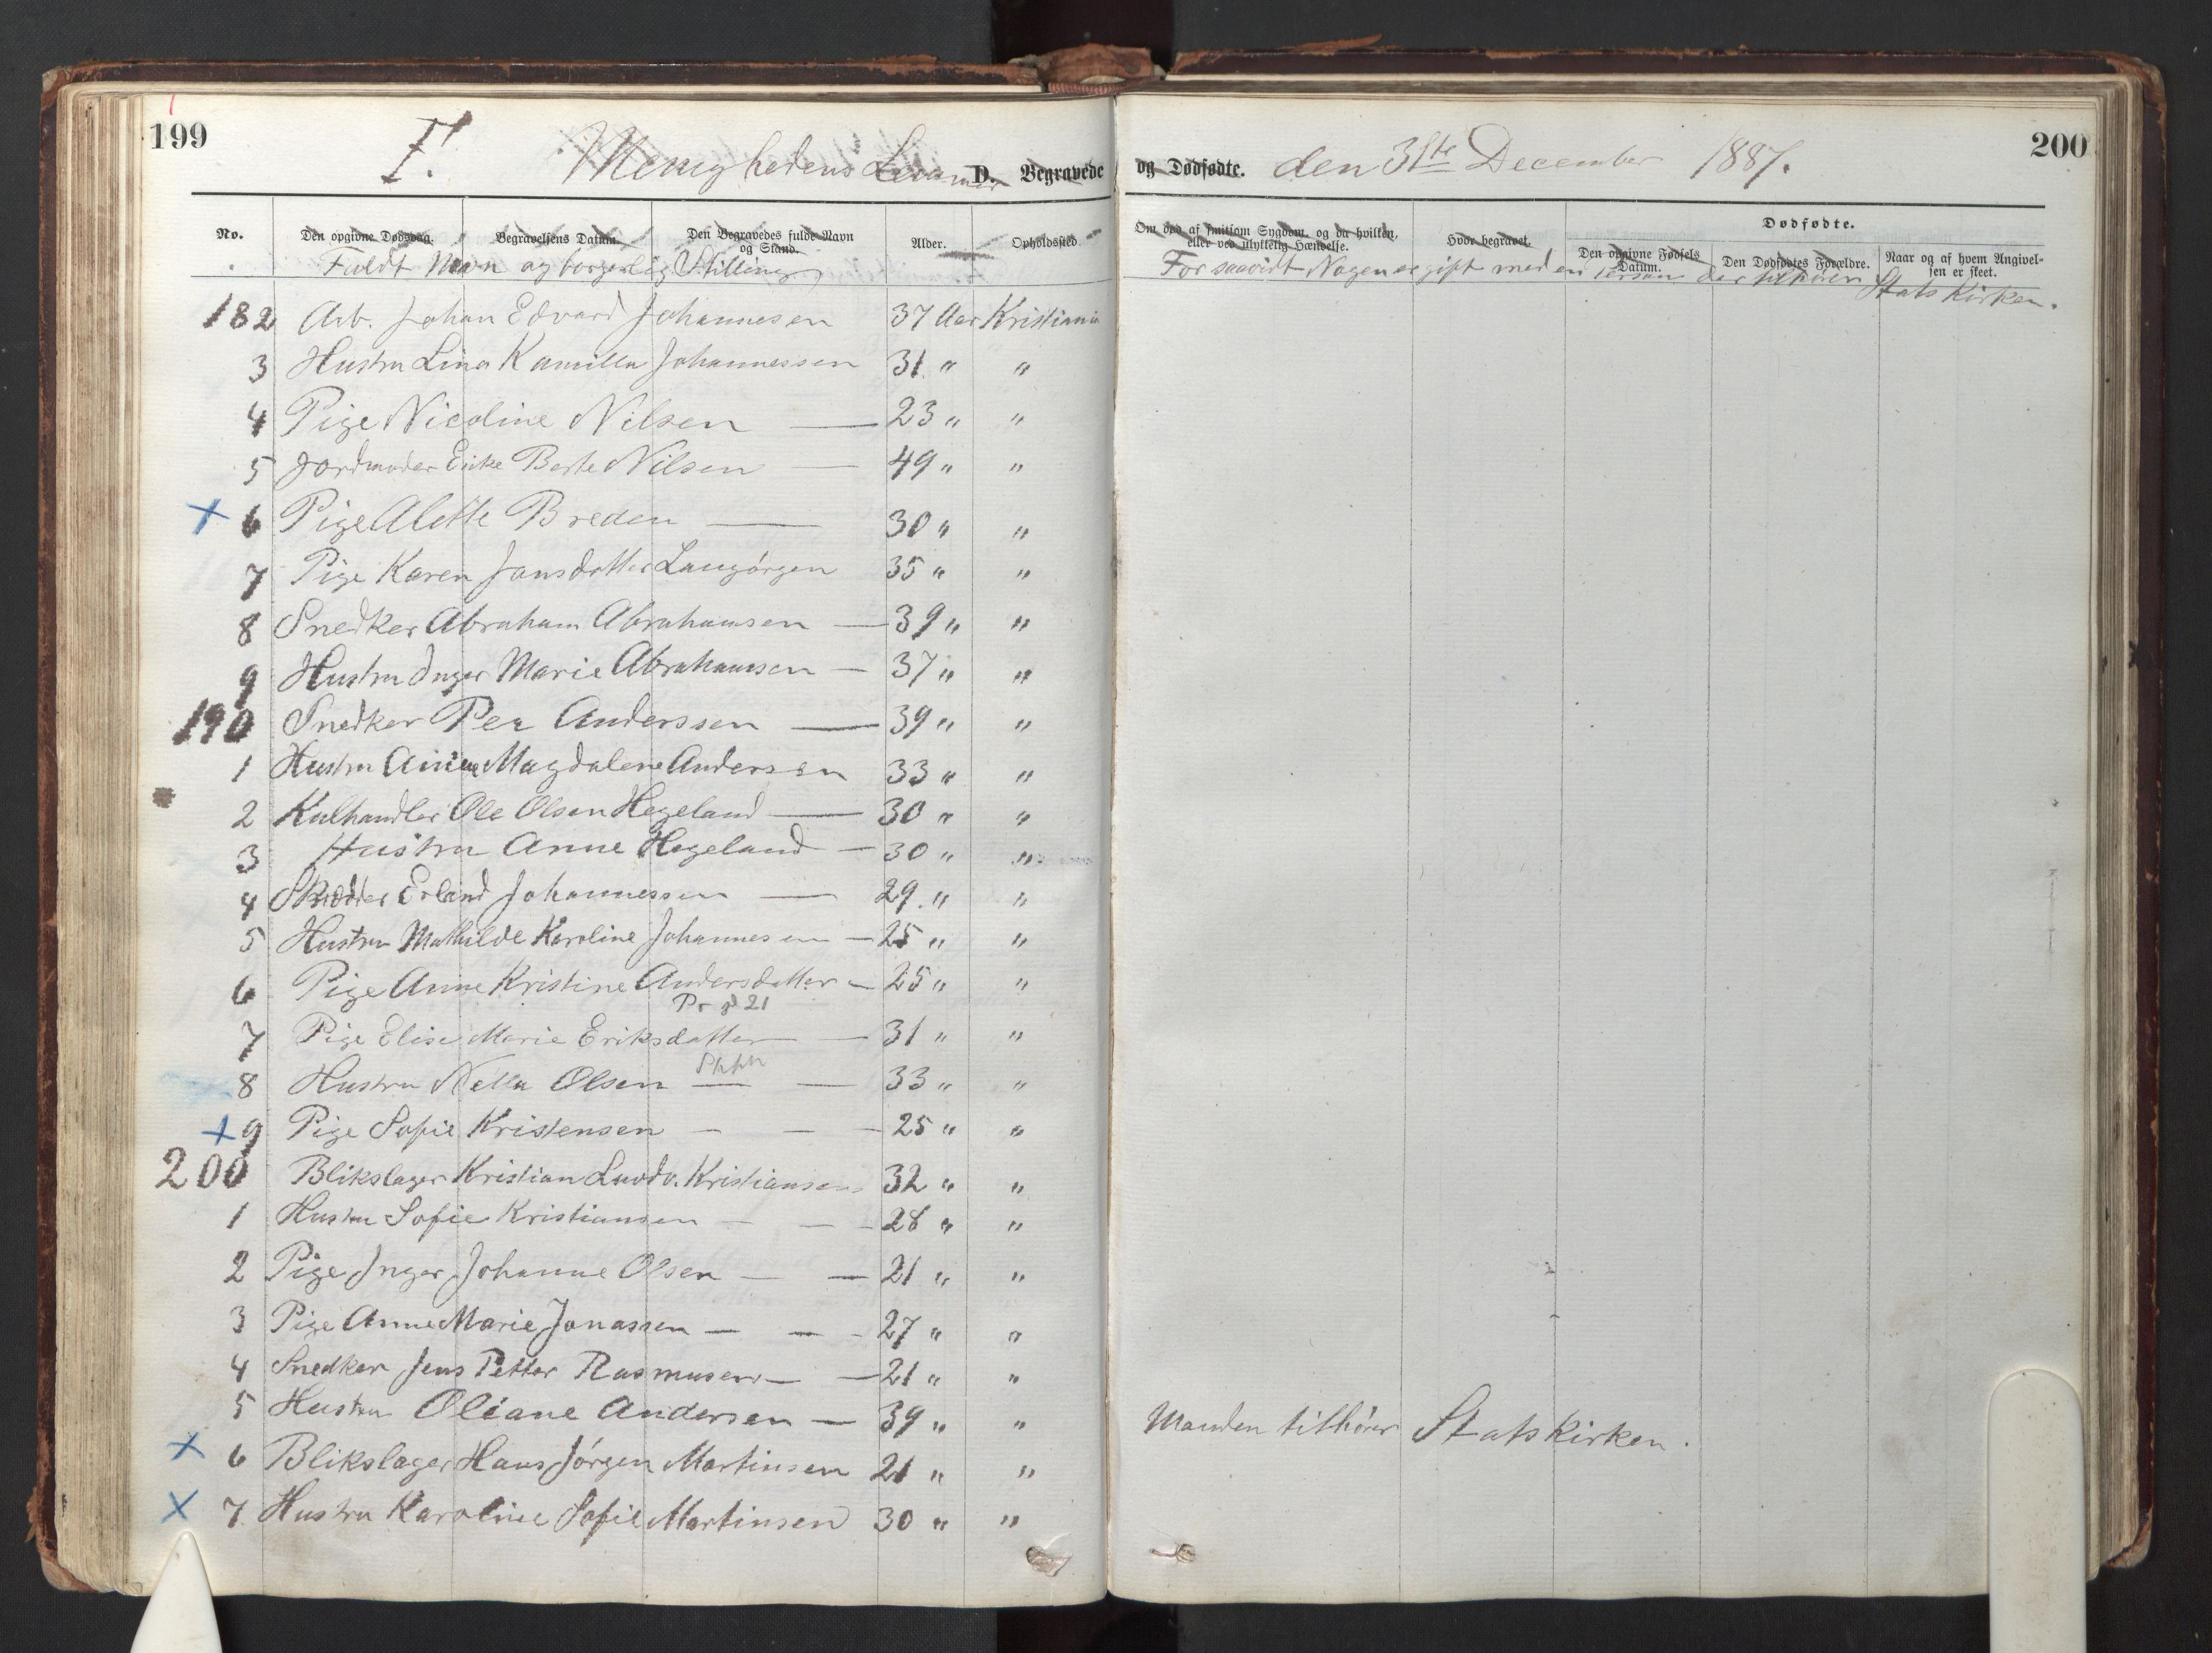 199
F. Menighedens D. Begravede
og Dødfødte. den 31te December 1887.
200
No. Den opgivne Dødsdag. Begravelsens Datum. Den Begravedes fulde Navn og Stand. Alder. Opholdssted.
Om død af smitsom Sygdom, og da hvilken, eller ved ulykkelig Hændelse. Hvor begravet. Dødfødte. Den opgivne Fødsels Datum. Den Dødfødtes Forældre. Naar og af hvem Angivelsen er skeet.
Fuldt Navn og borgerlig Stilling
For saavidt Nogen er gift med en Person der tilhører Stats Kirken.
182 Arb. Johan Edvard Johannesen 37 Aar Kristiania
3 Hustru Lina Kamilla Johannessen 31 " "
4 Pige Nicoline Nilsen — 23 " "
5 Jordmoder Enke Berte Nilsen — 49 " "
+ 6 Pige Alette Breden — 30 " "
7 Pige Karen Jansdatter Langørgen 35 " "
8 Snedker Abraham Abrahamsen — 39 " "
9 Hustru Inger Marie Abrahamsen — 37 " "
190 Snedker Per Anderssen — 39 " "
1 Hustru Magdalene Andersen 33 " "
2 Kulhandler Ole Olsen Hegeland — 30 " "
3 Hustru Anne Hegeland — 30 " "
4 Skrædder Erland Johannessen — 29 " "
5 Hustru Mathilde Karoline Johannesen — 25 " "
6 Pige Anne Kristine Andersdatter — 25 " "
Pr gl 21
7 Pige Elise Marie Eriksdatter — 31 " "
8 Hustru Nella Olsen — — 33 " "
+ 9 Pige Sofie Kristensen — — — 25 " "
200 Blikslager Kristian Ludv. Kristiansen 32 " "
1 Hustru Sofie Kristiansen — — — 28 " "
2 Pige Inger Johanne Olsen — — 21 " "
3 Pige Anne Marie Jonassen — — — 27 " "
4 Snedker Jens Petter Rasmusen — — 21 " "
5 Hustru Oliane Andersen — 39 " " Manden tilhører Statskirken.
x 6 Blikslager Hans Jørgen Martinsen 21 " "
x 7 Hustru Karoline Sofie Martinsen 30 " "